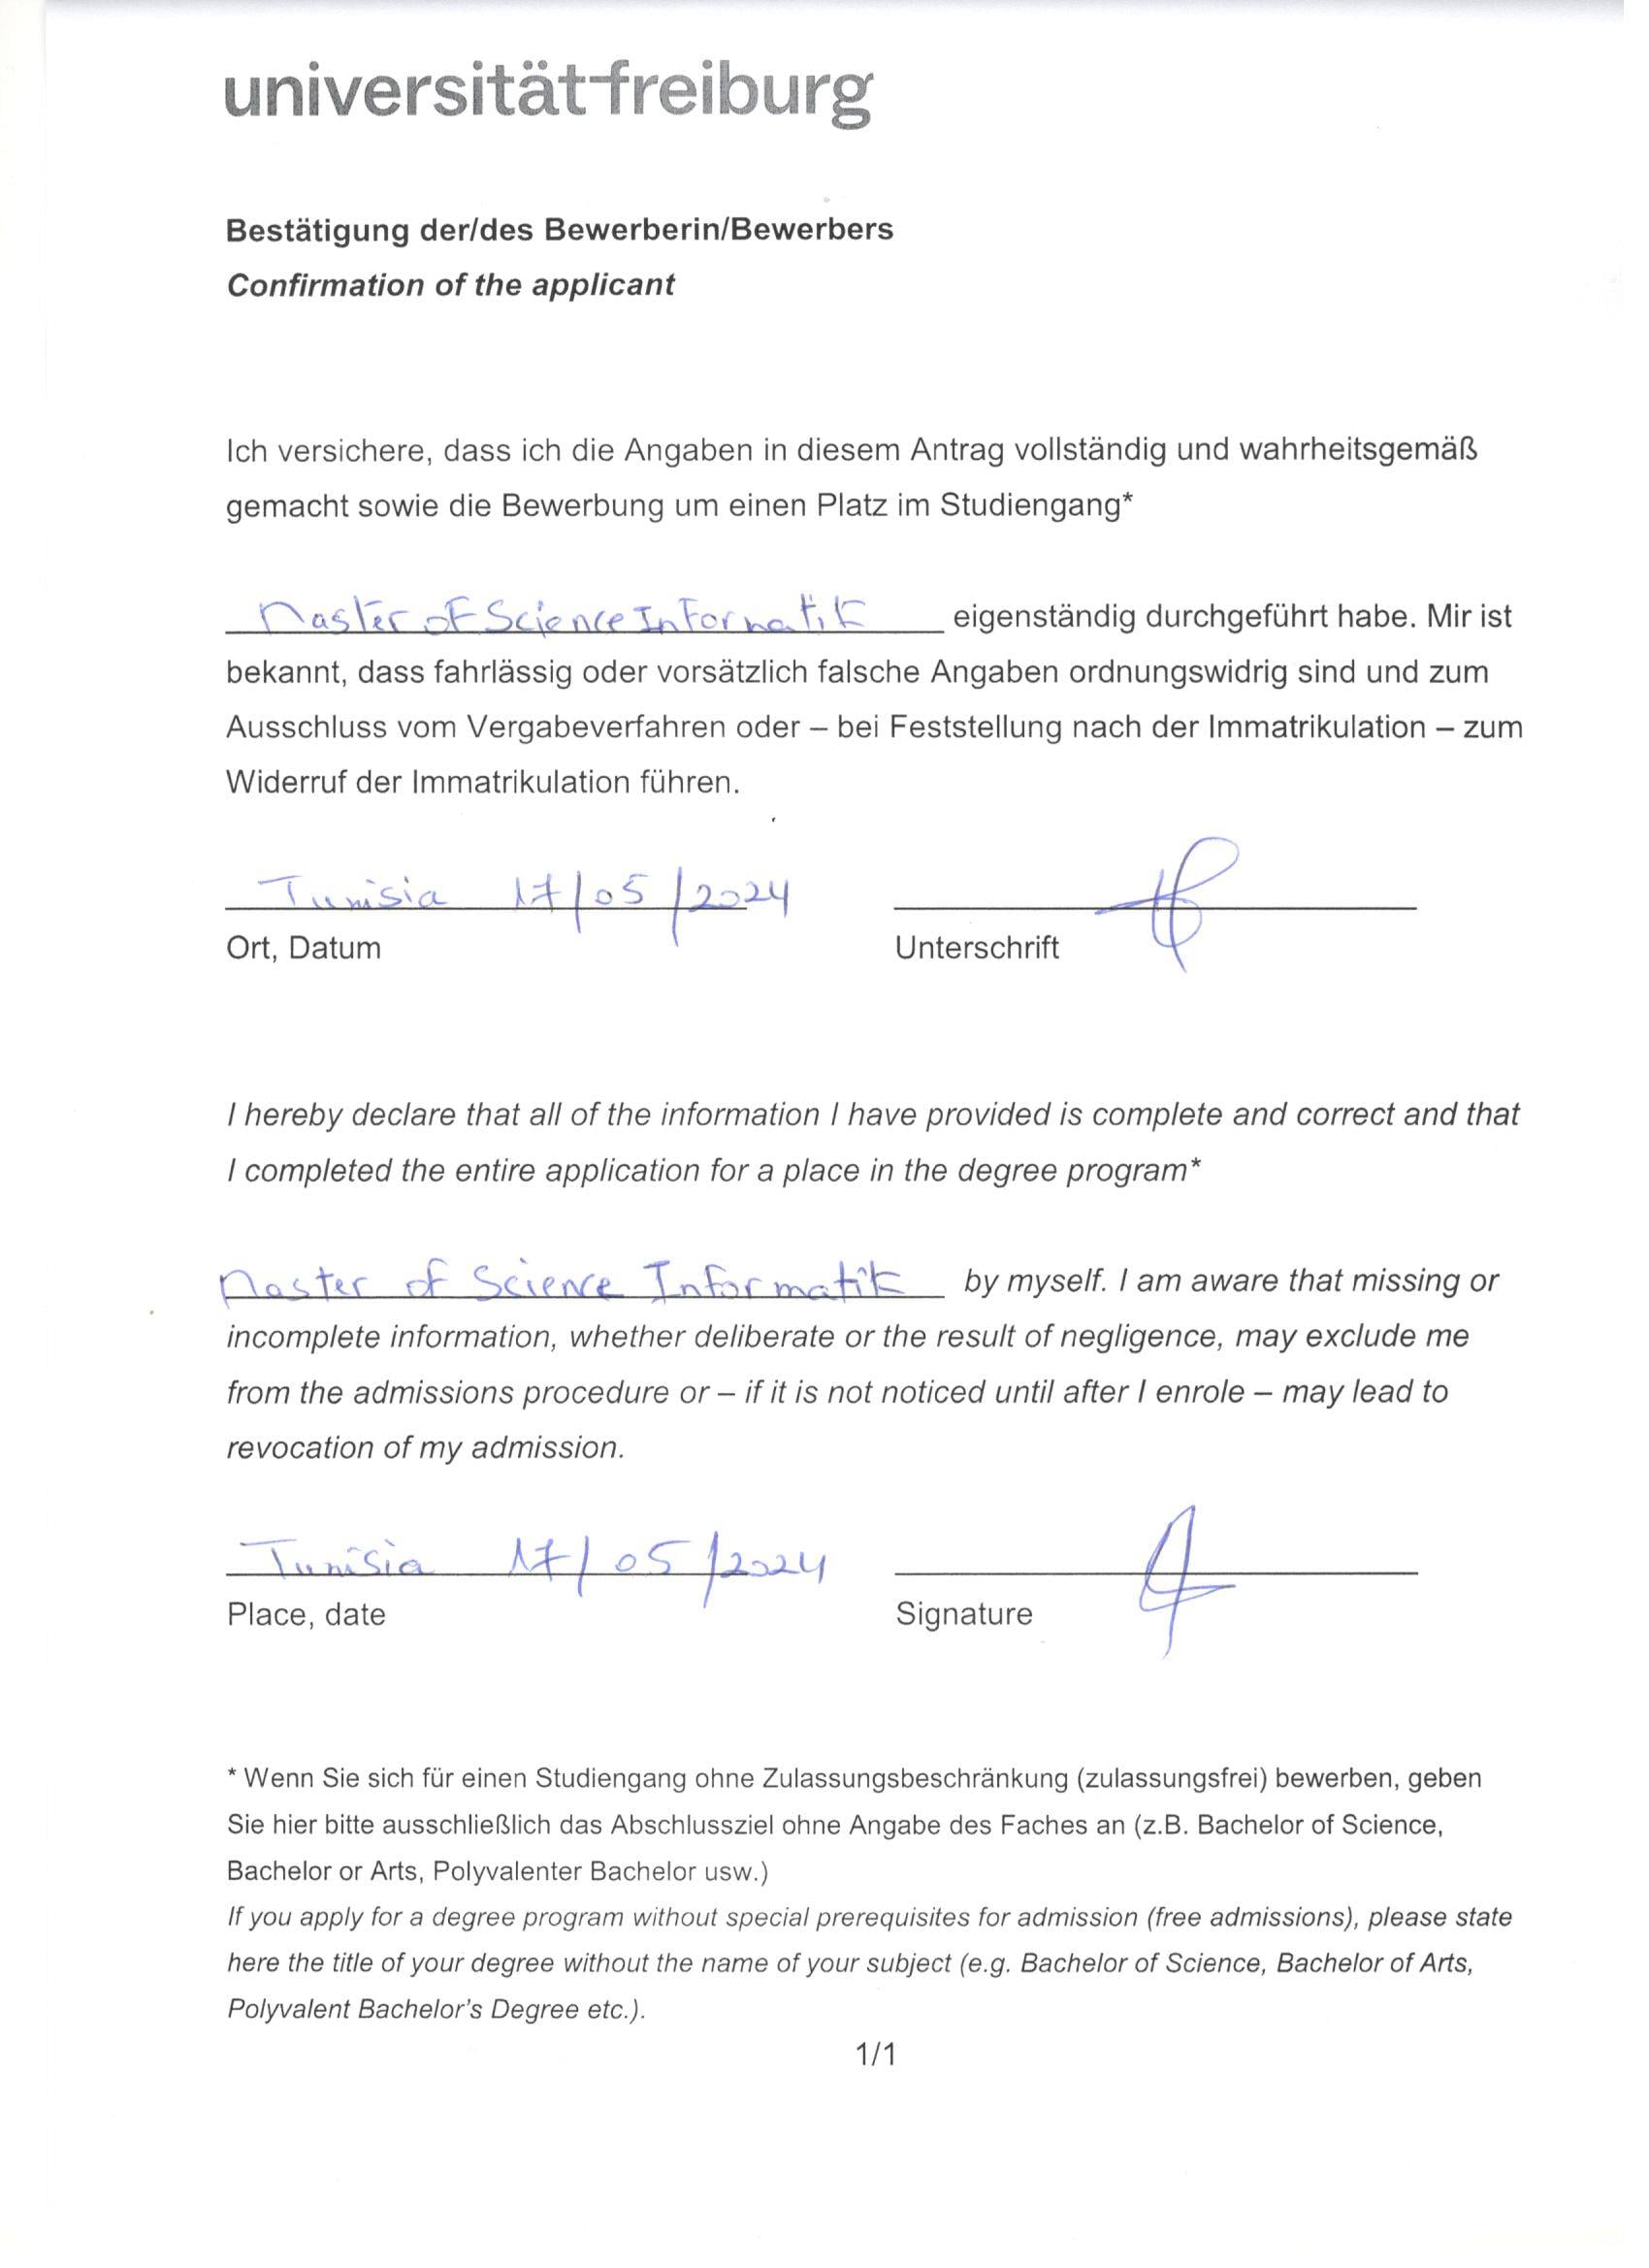 universität freiburg
Bestätigung der/des Bewerberin/Bewerbers
Confirmation of the applicant
Ich versichere, dass ich die Angaben in diesem Antrag vollständig und wahrheitsgemäß
gemacht sowie die Bewerbung um einen Platz im Studiengang*
Master of Science Informatik eigenständig durchgeführt habe. Mir ist
bekannt, dass fahrlässig oder vorsätzlich falsche Angaben ordnungswidrig sind und zum
Ausschluss vom Vergabeverfahren oder – bei Feststellung nach der Immatrikulation – zum
Widerruf der Immatrikulation führen.
Tunisia 17/05/2024
Ort, Datum Unterschrift
I hereby declare that all of the information I have provided is complete and correct and that
I completed the entire application for a place in the degree program*
Master of Science Informatik by myself. I am aware that missing or
incomplete information, whether deliberate or the result of negligence, may exclude me
from the admissions procedure or – if it is not noticed until after I enrole – may lead to
revocation of my admission.
Tunisia 17/05/2024
Place, date Signature
* Wenn Sie sich für einen Studiengang ohne Zulassungsbeschränkung (zulassungsfrei) bewerben, geben
Sie hier bitte ausschließlich das Abschlussziel ohne Angabe des Faches an (z.B. Bachelor of Science,
Bachelor or Arts, Polyvalenter Bachelor usw.)
If you apply for a degree program without special prerequisites for admission (free admissions), please state
here the title of your degree without the name of your subject (e.g. Bachelor of Science, Bachelor of Arts,
Polyvalent Bachelor's Degree etc.).
1/1